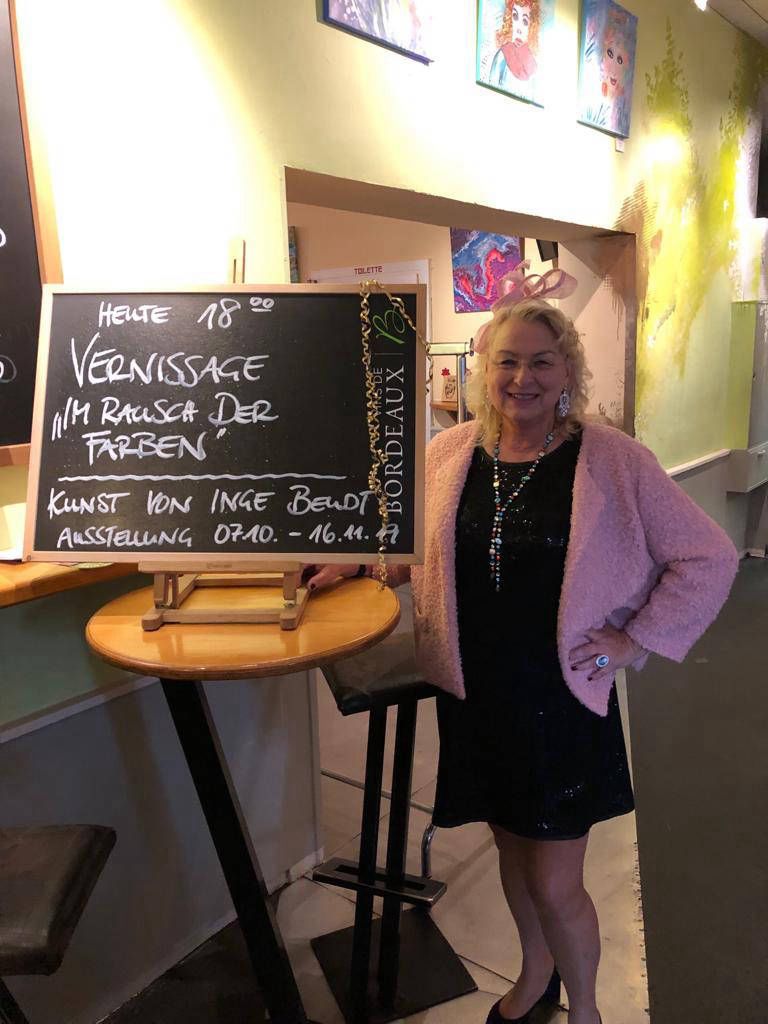 TOILETTE
HEUTE 18⁰⁰
VERNISSAGE
„IM RAUSCH DER
FARBEN"
KUNST VON INGE BEUDT
AUSSTELLUNG 07.10. - 16.11.
BORDEAUX
B